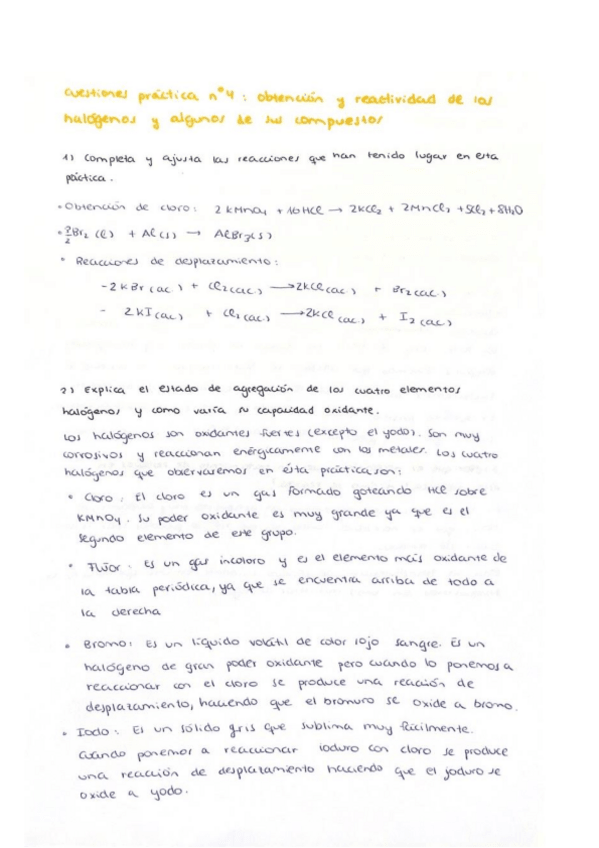 Cuestiones práctica nº4: obtención y reactividad de los
halógenos y algunos de sus compuestos
1) Completa y ajusta las reacciones que han tenido lugar en esta
práctica.
• Obtención de cloro: 2 KMnO4 + 16HCl → 2KCl2 + 2MnCl2 + 5Cl2 + 8H2O
• 3/2 Br2 (l) + Al(s) → AlBr3(s)
• Reacciones de desplazamiento:
- 2KBr(ac) + Cl2(ac) → 2KCl(ac) + Br2(ac)
- 2KI(ac) + Cl2(ac) → 2KCl(ac) + I2(ac)
2) Explica el estado de agregación de los cuatro elementos
halógenos y como varía su capacidad oxidante.
Los halógenos son oxidantes fuertes (excepto el yodo). Son muy
corrosivos y reaccionan enérgicamente con los metales. Los cuatro
halógenos que observaremos en ésta práctica son:
• Cloro: El cloro es un gas formado goteando HCl sobre
KMnO4. Su poder oxidante es muy grande ya que es el
segundo elemento de este grupo.
• Flúor: Es un gas incoloro y es el elemento más oxidante de
la tabla periódica, ya que se encuentra arriba de todo a
la derecha
• Bromo: Es un líquido volátil de color rojo sangre. Es un
halógeno de gran poder oxidante pero cuando lo ponemos a
reaccionar con el cloro se produce una reacción de
desplazamiento, haciendo que el bromuro se oxide a bromo.
• Iodo: Es un sólido gris que sublima muy fácilmente.
Cuando ponemos a reaccionar ioduro con cloro se produce
una reacción de desplazamiento haciendo que el ioduro se
oxide a yodo.